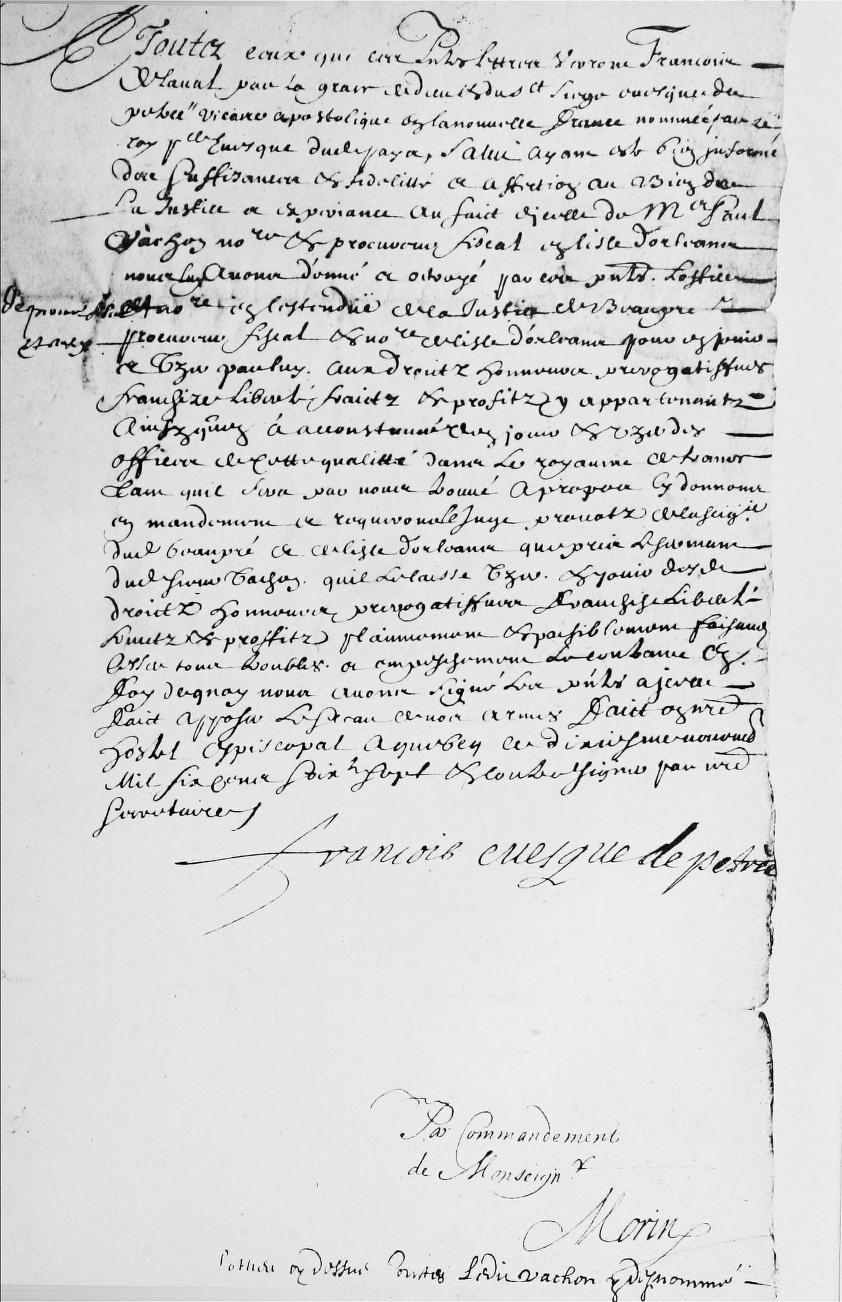 A Toutz ceux qui ces p̃ntes lettres verront Francois
de laval par la grace de dieu & du st siege evesque de
petrée vicaire apostolique en la nouvelle france nommé par le
roy pr Evesque dud pays, Salut ayant esté bien informé
des suffizance & fidelitté et affection au Bien de
La Justice et expeiriance au faict dicelle de Mre Paul
Vachon nore & procureur fiscal en lisle dorleans
nous luy Avons donné et octroyé par ces p̃ntes Loffice
nore en lestenduë de la Justice de Beaupré
procureur fiscal & nore de lisle dorleans pour en jouir
et Uzer par luy. aux droictz honneurs prerogatifves
franchizes Liberté fruictz & profitz y appartenantz
Ainsy quon à accoustumé den jouir & Uzer les
officiers de cette qualitté dans Le royaume de france
tant quil sera par nous trouvé A propos Sy donnons
en mandement et requerons le Juge prevotz de la seigrie
dud beaupré et de lisle dorleans que pris Le serment
dud sieur Vachon. quil Le laisse Uzer. & jouir desd
droictz honneurs, prerogatifves franchise Liberté
fruictz & proffitz plainnement & paisiblement faisant
Cesser tous troubles et empeschement Au contraire En
foy dequoy nous avons signé Les p̃ntes a jcelles
faict apposer Le sceau de nos armes faict en nre
hostel Episcopal A quebecq Le dixiesme novembre
Mil six cens soixte sept & contresigner par nre
Secretaire
francois evesque de petrée
Par Commandement
de Monseignr
Morin
cy dessus Led vachon y desnommé